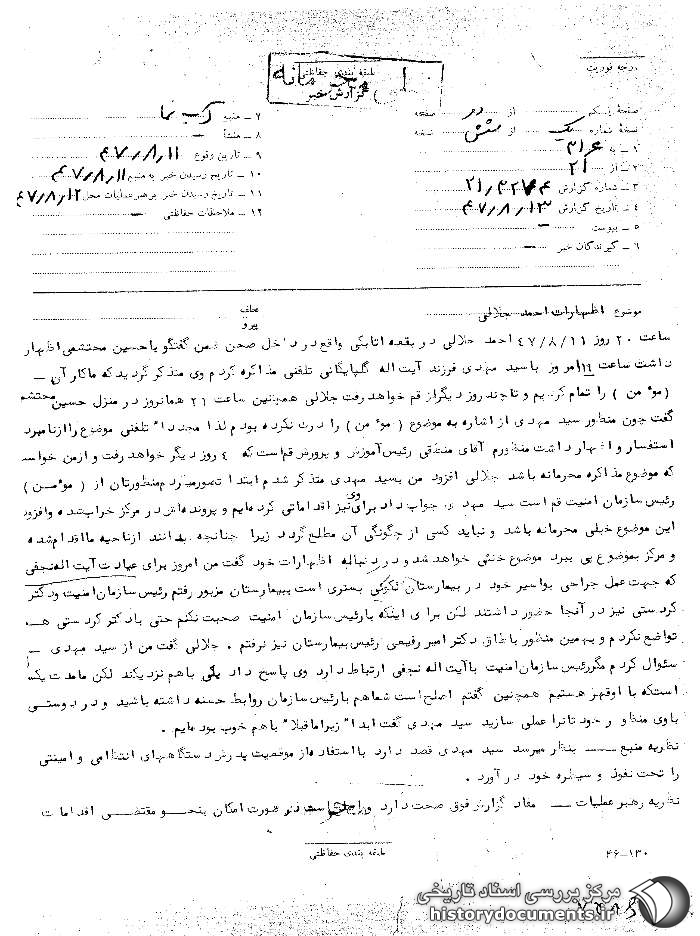 درجه فوریت
طبقه بندی حفاظتی
گزارش خبر
صفحه یکم از دو صفحه
نسخه شماره یک از شش نسخه
۱ - به
۲ - از ۲۱
۳ - شماره گزارش
۴ - تاریخ گزارش ۴۷/۸/۱۳
۵ - پیوست –
۶ - گیرندگان خبر –
۷ - منبع
۸ - منشأ –
۹ - تاریخ وقوع ۴۷/۸/۱۱
۱۰ - تاریخ رسیدن خبر به منبع ۴۷/۸/۱۱
۱۱ - تاریخ رسیدن خبر به رهبر عملیات محل ۴۷/۸/۱۲
۱۲ - ملاحظات حفاظتی –
موضوع اظهارات احمد جلالی
عطف
پیرو
ساعت ۲۰ روز ۴۷/۸/۱۱ احمد جلالی در بقعه اتابکی واقع در داخل صحن ضمن گفتگو با حسین محتشمی اظهار
داشت ساعت ۱۱ امروز با سید مهدی فرزند آیت اله گلپایگانی تلفنی مذاکره کردم وی متذکر گردید که ما کار آن –
(مو٬ من) را تمام کردیم و تا چند روز دیگر از قم خواهد رفت جلالی همچنین ساعت ۲۱ همانروز در منزل حسین محتشم
گفت چون منظور سید مهدی از اشاره به موضوع (مو٬ من) را درک نکرده بودم لذا مجددا" تلفنی موضوع را از نامبرده
استفسار و اظهار داشت منظورم آقای منطقی رئیس آموزش و پرورش قم است که ۴ روز دیگر خواهد رفت و از من خواست
که موضوع مذاکره محرمانه باشد جلالی افزود من بسید مهدی متذکر شدم ابتدا تصور میکردم منظورتان از (مو٬ من)
رئیس سازمان امنیت قم است سید مهدی جواب داد برای وی نیز اقداماتی کرده‌ایم و پرونده‌اش در مرکز خراب شده و افزود
این موضوع خیلی محرمانه باشد و نباید کسی از چگونگی آن مطلع گردد زیرا چنانچه بدانند از ناحیه ما اقدام شده
و مرکز بموضوع پی ببرد موضوع خنثی خواهد شد و در دنباله اظهارات خود گفت من امروز برای عیادت آیت اله نجفی
که جهت عمل جراحی بواسیر خود در بیمارستان نکوئی بستری است ببیمارستان مزبور رفتم رئیس سازمان امنیت و دکتر
کردستی نیز در آنجا حضور داشتند لکن برای اینکه با رئیس سازمان امنیت صحبت نکنم حتی با دکتر کردستی هم
تواضع نکردم و بهمین منظور باطاق دکتر امیر رفیعی رئیس بیمارستان نیز نرفتم . جلالی گفت من از سید مهدی –
سئوال کردم مگر رئیس سازمان امنیت با آیت اله نجفی ارتباط دارد وی پاسخ داد بلی باهم نزدیکند لکن ما مدت یکسال
استکه با او قهر هستیم همچنین گفتم اصلح است شما هم با رئیس سازمان روابط حسنه داشته باشید و در دوستی
با وی منظور خود تانرا عملی سازید سید مهدی گفت ابدا" زیرا ما قبلا" باهم خوب بوده‌ایم .
نظریه منبع – بنظر میرسد سید مهدی قصد دارد با استفاده از موقعیت پدرش دستگاههای انتظامی و امنیتی
را تحت نفوذ و سیطره خود درآورد .
نظریه رهبر عملیات – مفاد گزارش فوق صحت دارد در صورت امکان بنحو مقتضی اقدامات
طبقه بندی حفاظتی
۴۶-۱۳۰
مرکز بررسی اسناد تاریخی
historydocuments.ir